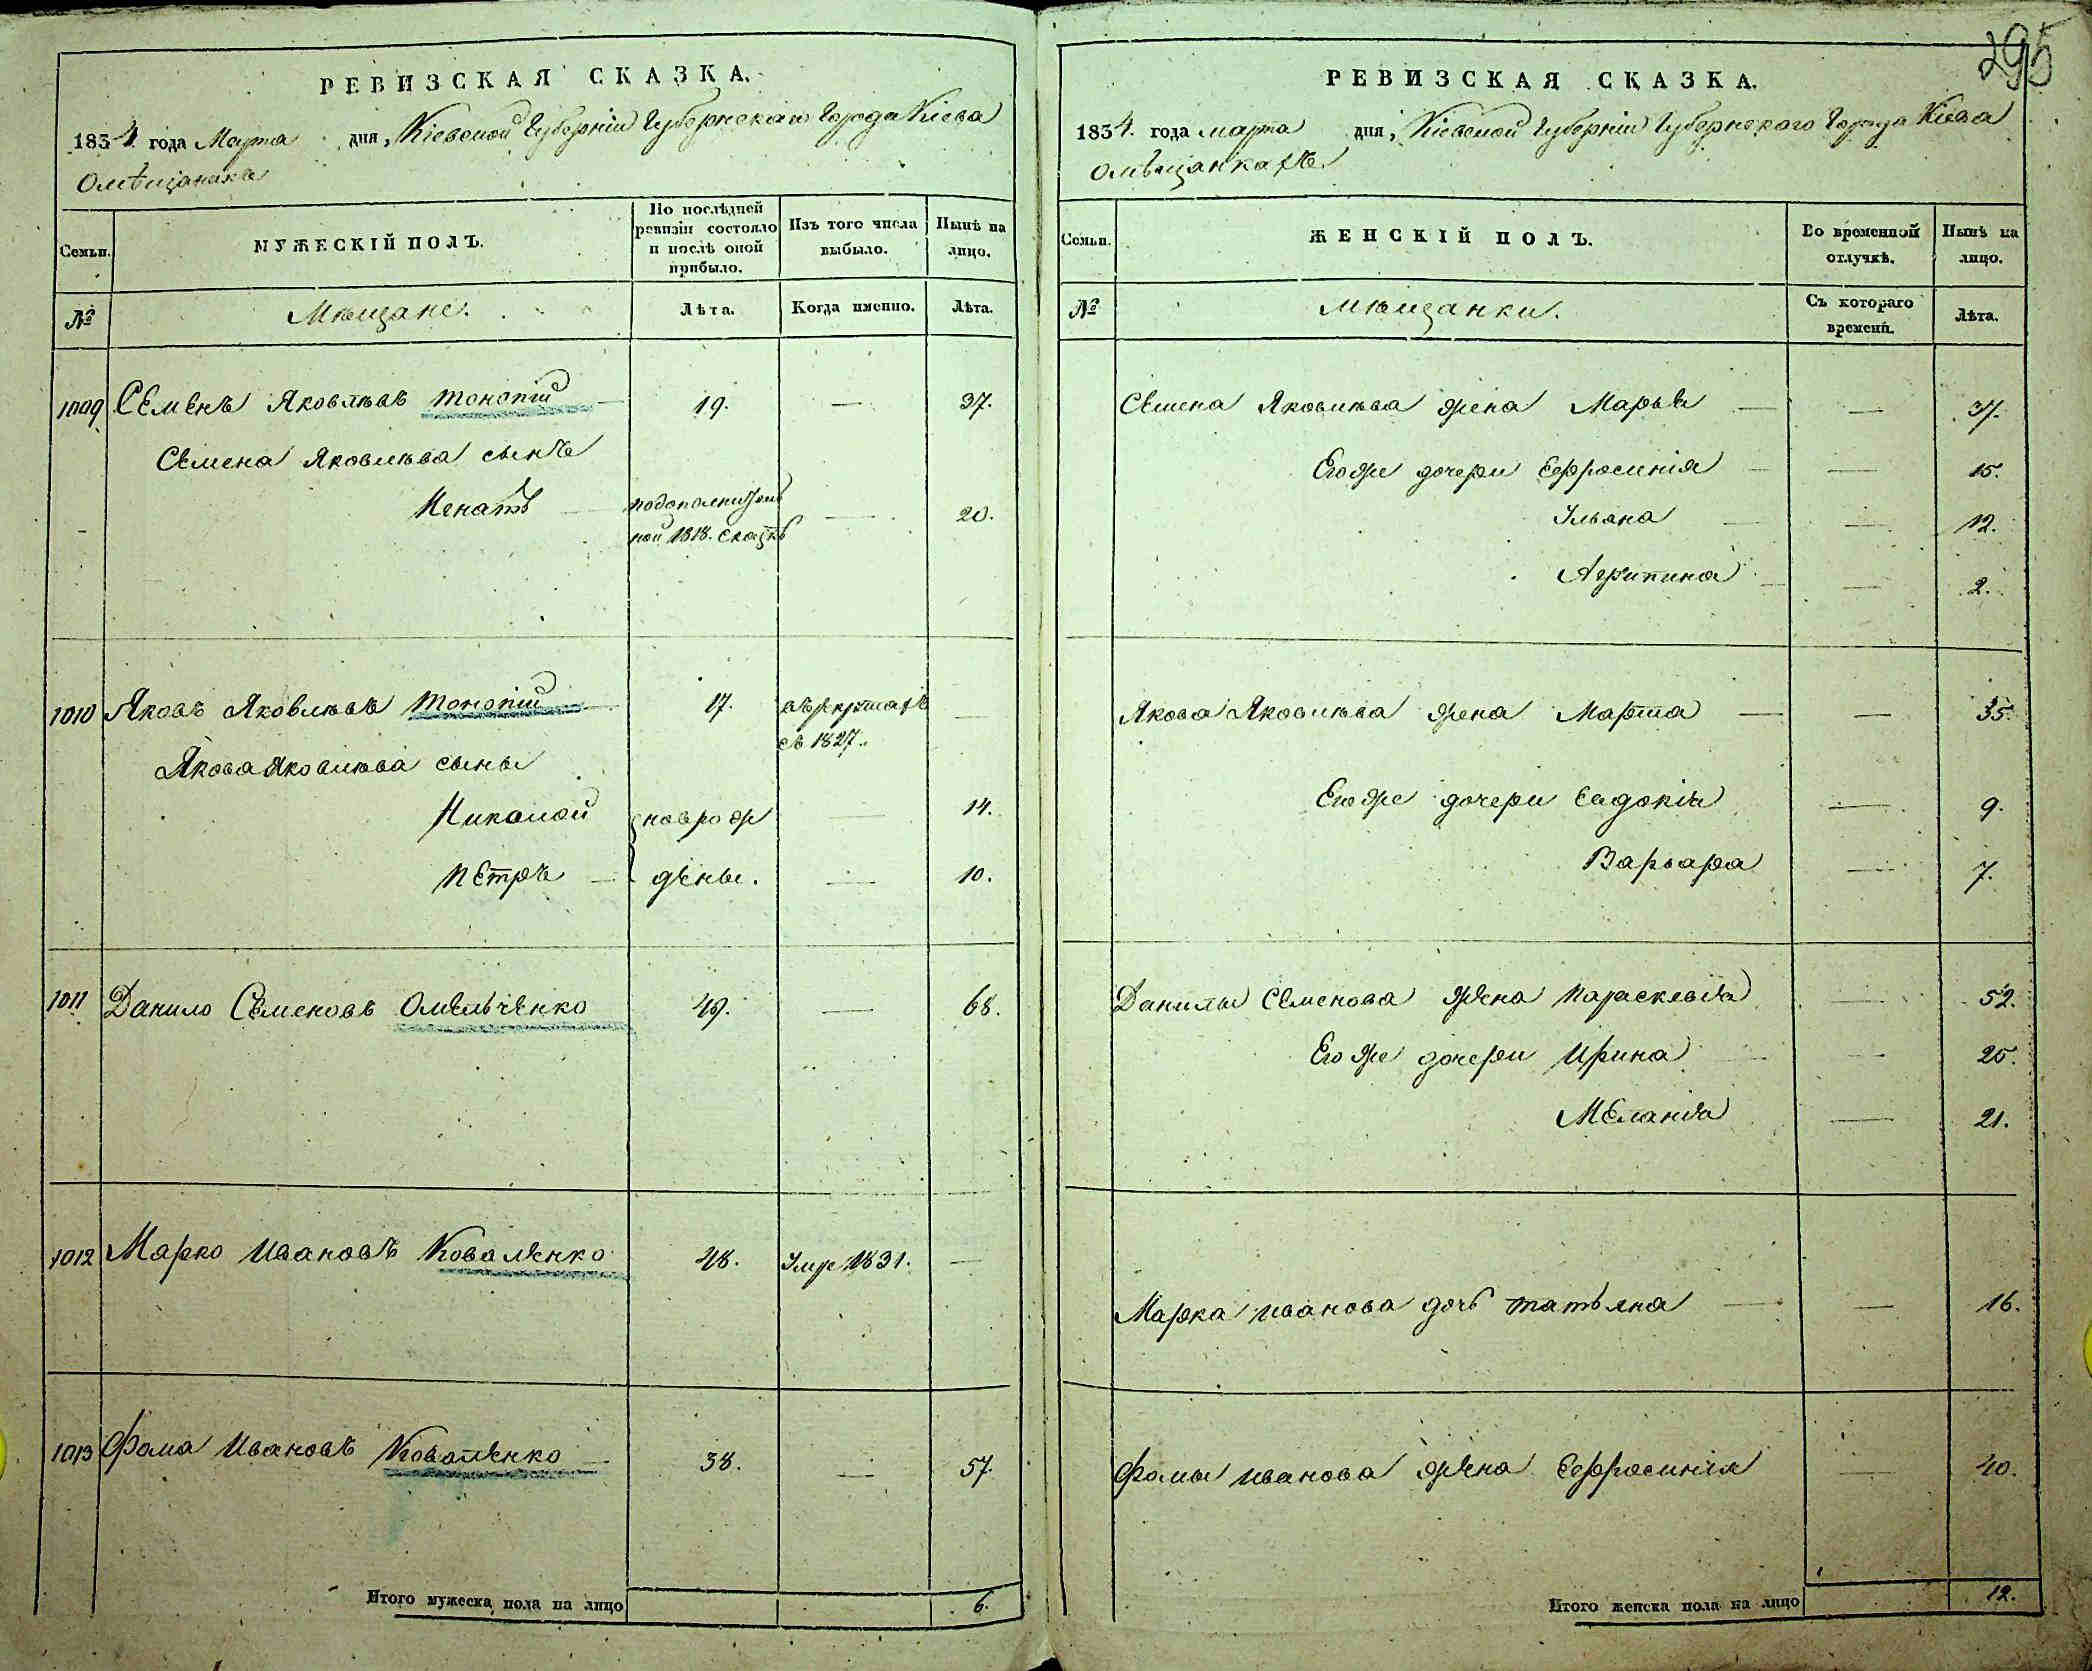 295
РЕВИЗСКАЯ СКАЗКА.
1834 года Марта дня, Кіевской Губерніи Губернскаго Города Кіева
Омѣщанахъ
Семьи.
МУЖЕСКІЙ ПОЛЪ.
По послѣдней ревизіи состояло и послѣ оной прибыло.
Изъ того числа выбыло.
Нынѣ на лицо.
№
Мѣщане.
Лѣта.
Когда именно.
Лѣта.
1009 Семенъ Яковлевъ Тонопій 19. — 37.
Семена Яковлева сынъ
Игнатъ — подополнитель — 20.
ной 1818. сказкѣ
1010 Яковъ Яковлевъ Тонопій — 17. врекрутахъ —
съ 1827.
Якова Яковлева сыны
Николай новрож — 14.
Петръ — дены. — 10.
1011 Данило Семеновъ Омельченко 49. — 68.
1012 Марко Ивановъ Коваленко 48. Умре 1831. —
1013 Фома Ивановъ Коваленко — 38. — 57.
Итого мужеска пола на лицо 6.
РЕВИЗСКАЯ СКАЗКА.
1834. года марта дня, Кіевской Губерніи Губернскаго Города Кіева
Омѣщанкахъ
Семьи.
ЖЕНСКІЙ ПОЛЪ.
Во временной отлучкѣ.
Нынѣ на лицо.
№
Мѣщанки.
Съ котораго времени.
Лѣта.
Семена Яковлева жена Марья — — 37.
Егоже дочери Ефросинія — — 15.
Ульяна — — 12.
Агрипина — — 2.
Якова Яковлева жена Марфа — — 35.
Егоже дочери Евдокія — 9.
Варвара — 7.
Данилы Семенова жена Параскевія — 52.
Егоже дочери Ирина — — 25.
Меланія — 21.
Марка Иванова дочь Татьяна — — 16.
Фомы Иванова жена Ефросинія — 40.
Итого женска пола на лицо 12.